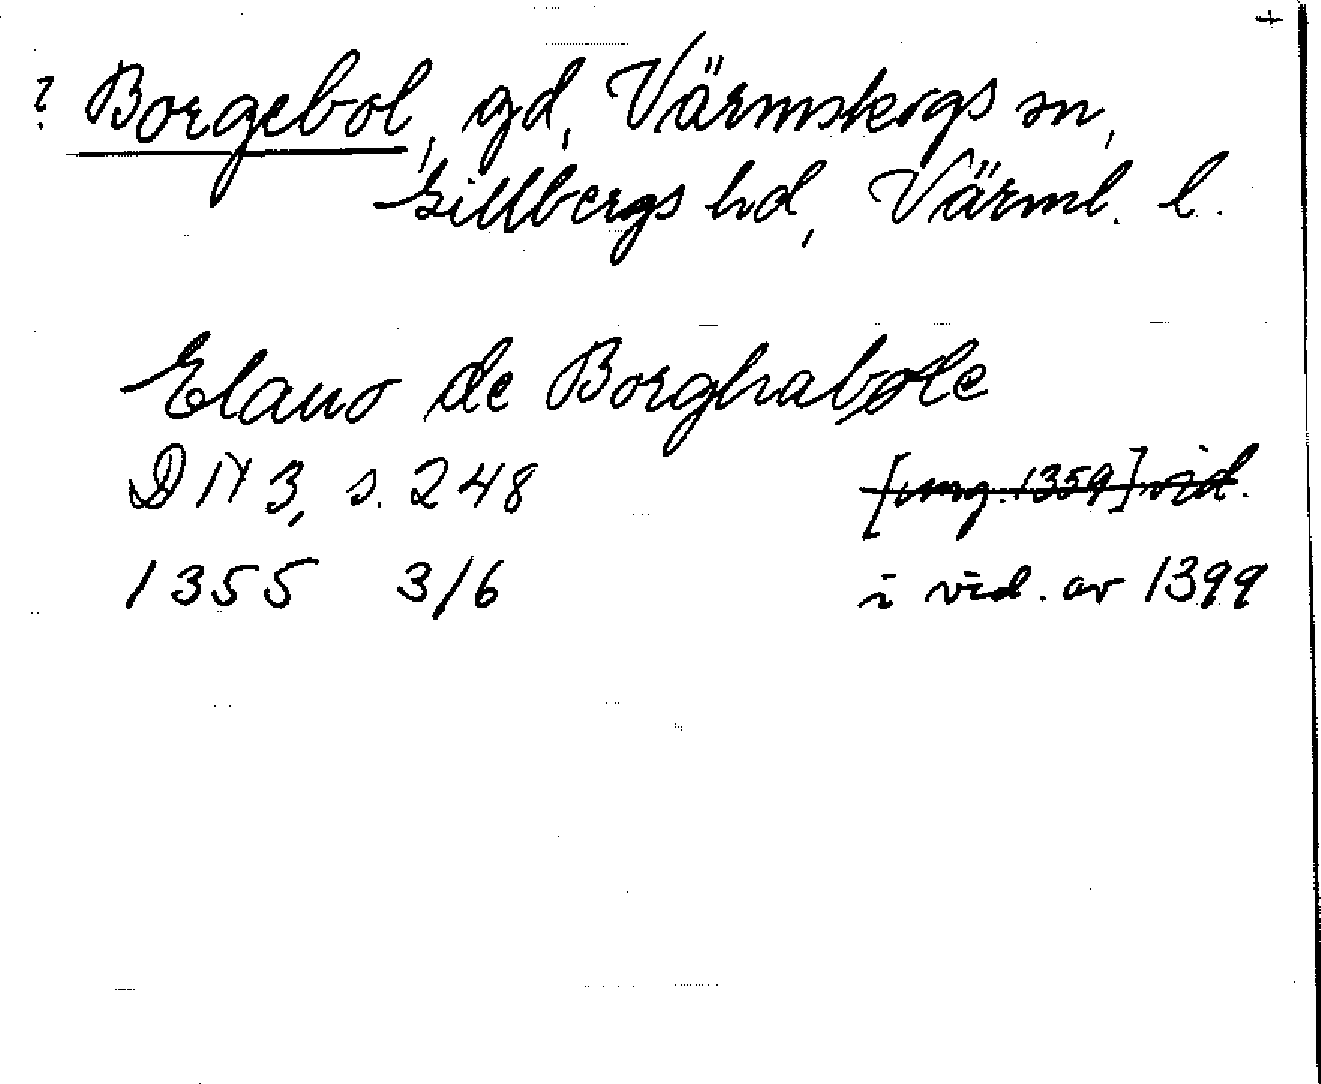 +
? Borgebol, gd, Värmskogs sn,
Gillbergs hd, Värml. l.
Elauo de Borghabole
DN 3, s. 248 [omg. 1359] vid.
1355 3/6 i vid. av 1399